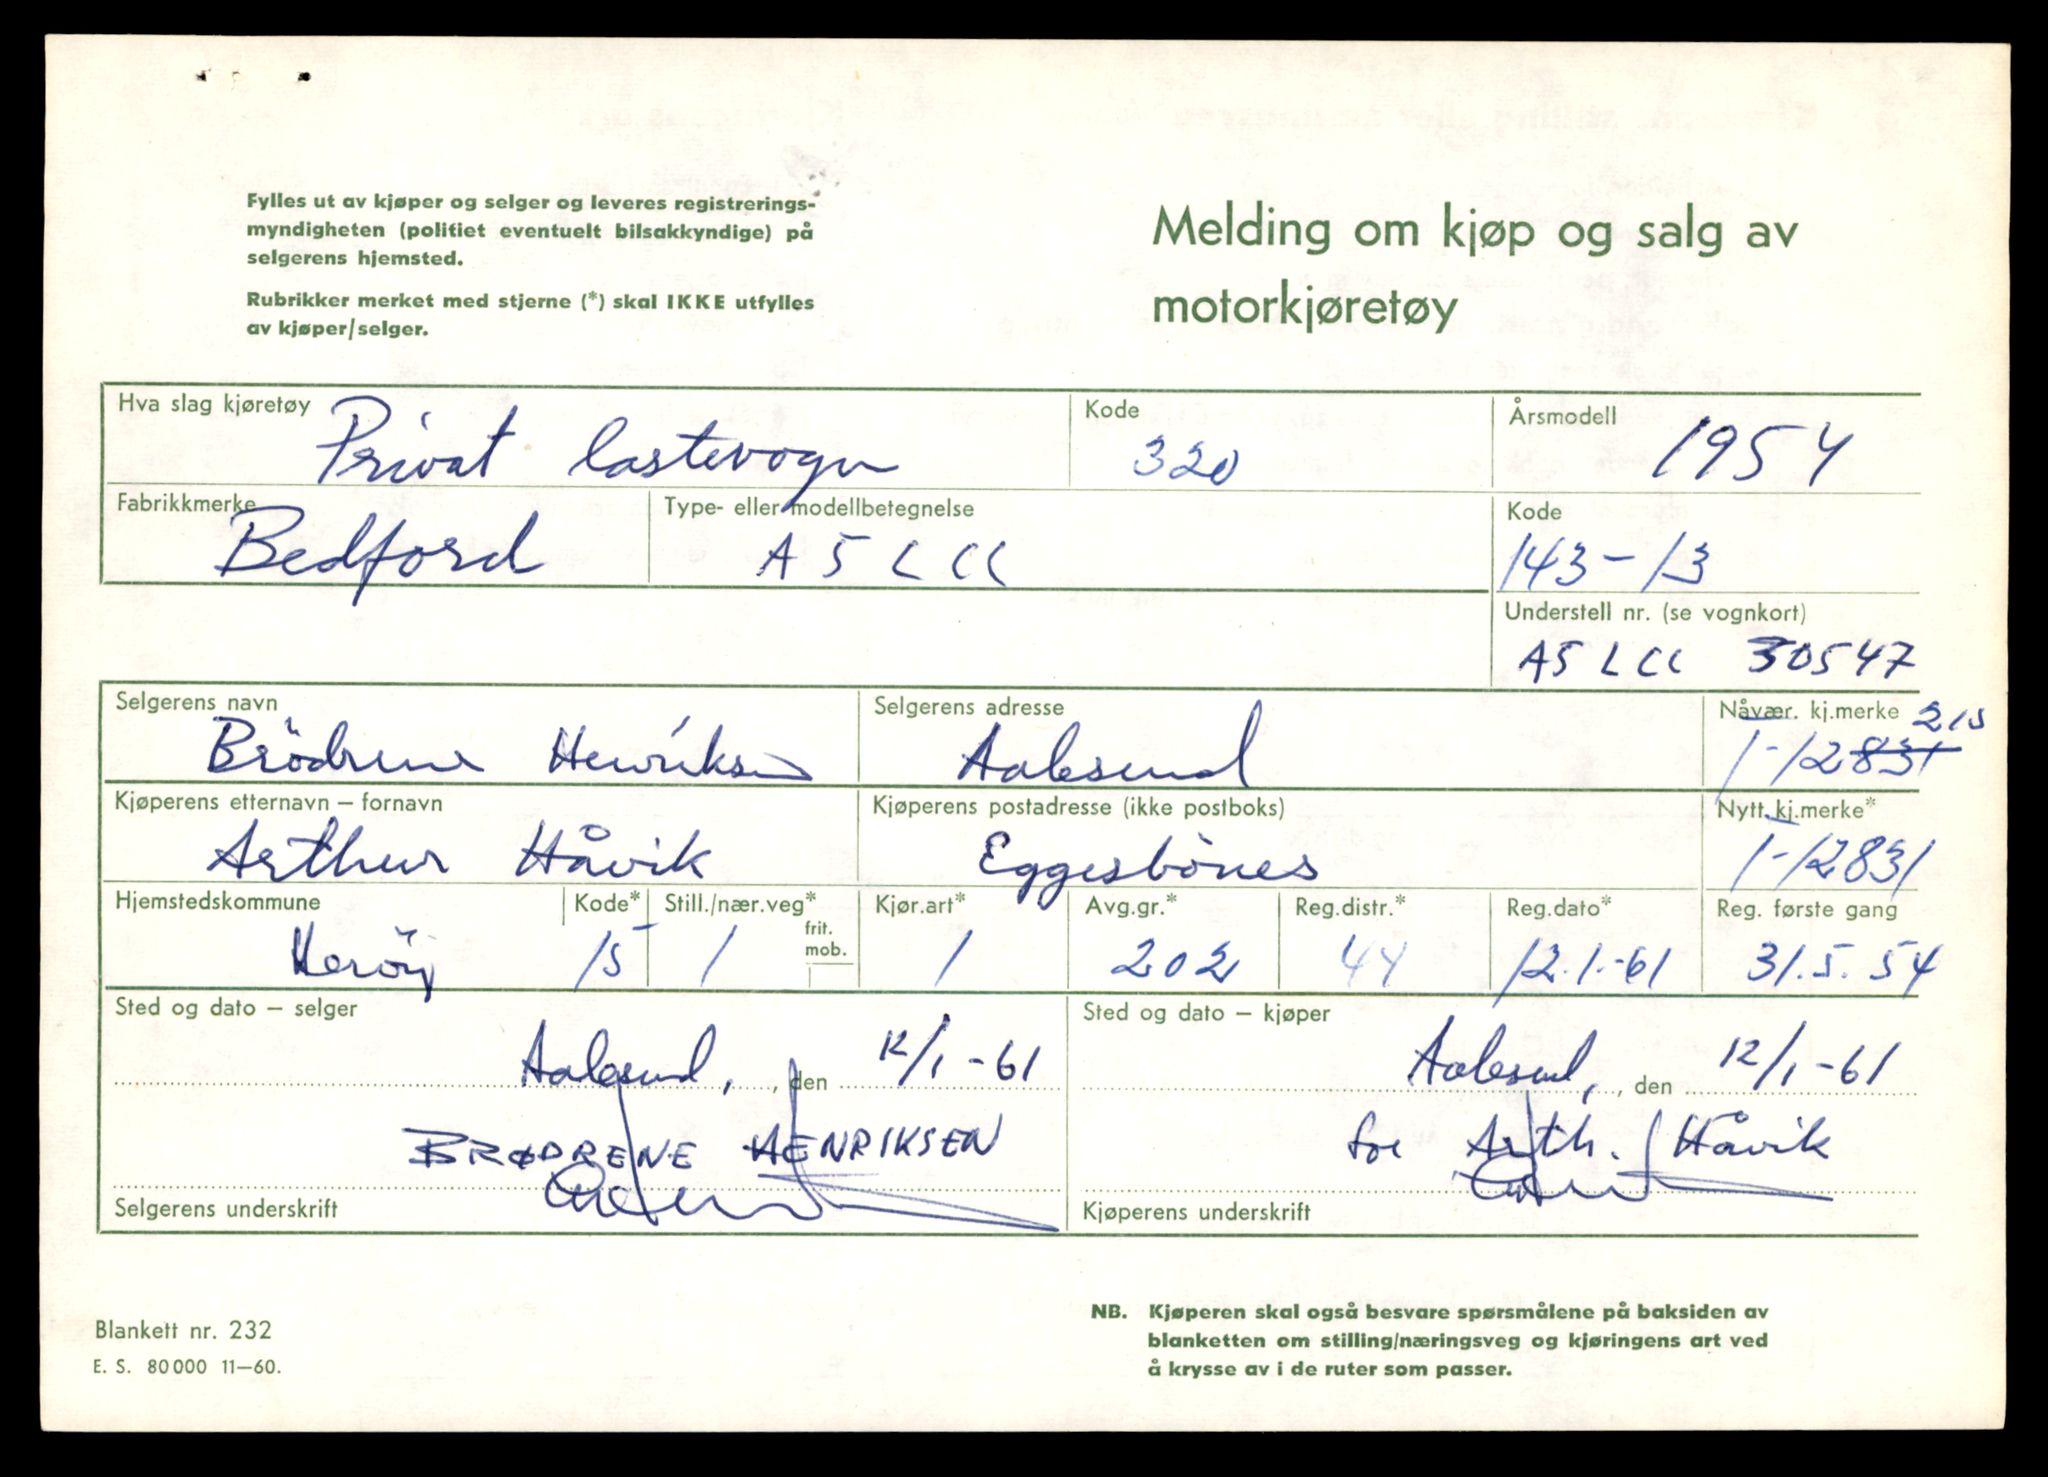 Fylles ut av kjøper og selger og leveres registrerings-
myndigheten (politiet eventuelt bilsakkyndige) på
selgerens hjemsted.
Rubrikker merket med stjerne (*) skal IKKE utfylles
av kjøper/selger.
Melding om kjøp og salg av
motorkjøretøy
Hva slag kjøretøy Privat lastevogn Kode 320 Årsmodell 1954
Fabrikkmerke Bedford Type- eller modellbetegnelse A5LCC Kode 143-13
Understell nr. (se vognkort)
A5LCC 30547
Selgerens navn Selgerens adresse Nåvær. kj.merke 215
Brödrene Henriksen Aalesund T-12831
Kjøperens etternavn – fornavn Kjøperens postadresse (ikke postboks) Nytt kj.merke*
Arthur Håvik Eggesbönes T-12831
Hjemstedskommune Kode* Still./nær.veg* frit. mob. Kjør.art* Avg.gr.* Reg.distr.* Reg.dato* Reg. første gang
Heröy 15 1 1 202 44 12.1.-61 31.5.54
Sted og dato – selger Sted og dato – kjøper
Aalesund, den 12/1-61 Aalesund, den 12/1-61
BRØDRENE HENRIKSEN for Arth. Håvik
Selgerens underskrift Kjøperens underskrift
Blankett nr. 232
E. S. 80000 11–60.
NB. Kjøperen skal også besvare spørsmålene på baksiden av
blanketten om stilling/næringsveg og kjøringens art ved
å krysse av i de ruter som passer.